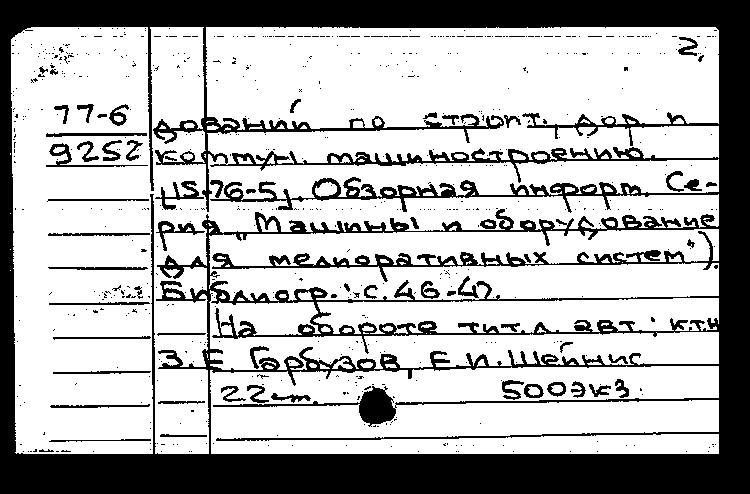 2.
77-6 дований по строит., дор. и
9252 коммун. машиностроению.
[IS-76-5]. Обзорная информ. Се-
рия „Машины и оборудование
для мелиоративных систем").
Библиогр.: с. 46-47.
На обороте тит. л. авт.: к.т.н
З. Е. Гарбузов, Е. И. Шейнис
22 см. 500 экз.